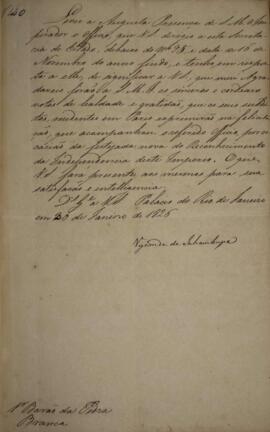 140
Levei a Augusta Presença de S. M. o Im-
perador o Officio, que VS. dirigio a esta Secreta-
ria de Estado, debaixo do Nº 28 e data de 15 de
Novembro do anno findo, e tenho em respos-
ta a elle, de significar a VS., que mui Agra-
daveis forão a S. M. I. os sinceros e cordiaes
votos de lealdade e gratidão, que os seus subdi-
tos, residentes em Paris exprimirão na felicita-
ção, que acompanhou o referido Officio, por oc-
casião da festejada nova do Reconhecimento
da Independencia deste Imperio. O que
VS. fará presente aos mesmos para sua
satisfação e intelligencia.
Ds. Ge. a VS. Palacio do Rio de Janeiro
em 26 de Janeiro de 1826
Visconde de Inhambupe
Sr. Barão da Pedra
Branca